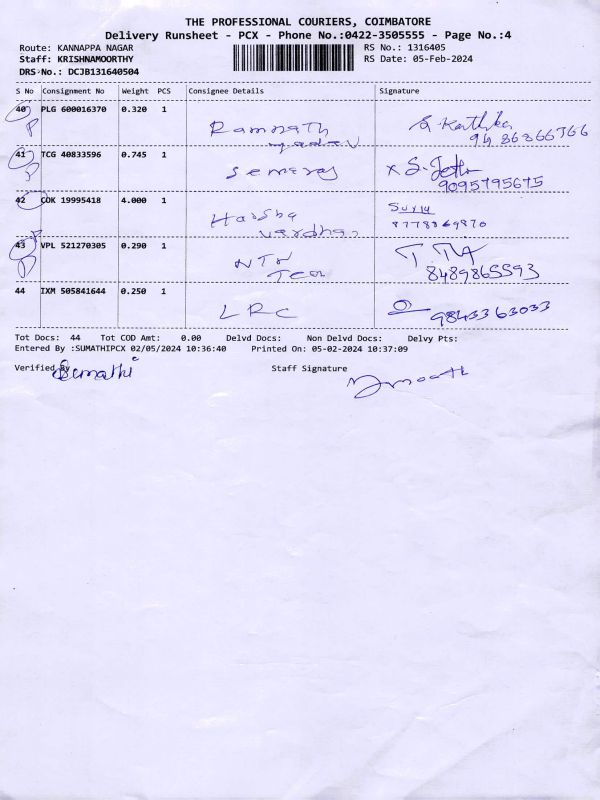 THE PROFESSIONAL COURIERS, COIMBATORE
Delivery Runsheet - PCX - Phone No.:0422-3505555 - Page No.:4
Route: KANNAPPA NAGAR RS No.: 1316405
Staff: KRISHNAMOORTHY RS Date: 05-Feb-2024
DRS No.: DCJB131640504
S No Consignment No Weight PCS Consignee Details Signature
40 PLG 600016370 0.320 1 Ramnath
41 TCG 40833596 0.745 1 Semaraj
9095795675
42 COK 19995418 4.000 1 Harsha Surya
vardhan 8778369870
43 VPL 521270305 0.290 1 NTN
Tea 8489865593
44 IXM 505841644 0.250 1 LRC 9843363033
Tot Docs: 44 Tot COD Amt: 0.00 Delvd Docs: Non Delvd Docs: Delvy Pts:
Entered By :SUMATHIPCX 02/05/2024 10:36:40 Printed On: 05-02-2024 10:37:09
Verified By Sumathi Staff Signature